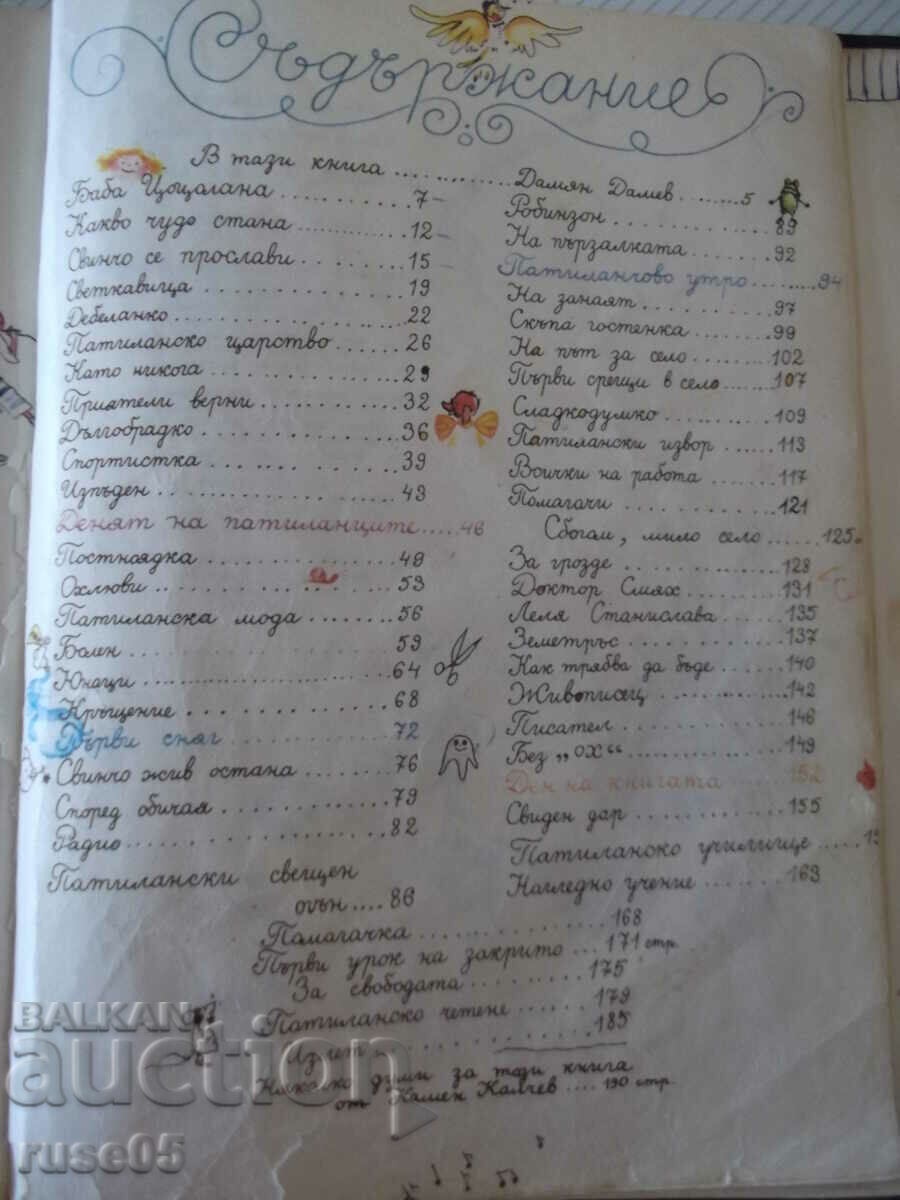 Съдържание
В тази книга ............ Дамян Дамев........5
Баба Цоцолана ............ 7
Какво чудо стана ............ 12
Свинчо се прослави ........ 15
Светкавица ............ 19
Дебеланко ............ 22
Патиланско царство ........ 26
Като никога ............ 29
Приятели верни ............ 32
Дългобрадко ............ 36
Спортистка ............ 39
Изпъден ............ 43
Денят на патиланците ..... 46
Постноядка ............ 49
Охлюви ............ 53
Патиланска мода ............ 56
Болен ............ 59
Юнаци ............ 64
Кръщение ............ 68
Първи сняг ............ 72
Свинчо жив остана ........ 76
Според обичая ............ 79
Радио ............ 82
Патилански свещен
огън .... 86
Робинзон ............ 89
На пързалката ........ 92
Патиланчово утро ..... 94
На занаят ............ 97
Скъпа гостенка ........ 99
На път за село ........ 102
Първи срещи в село ..... 107
Сладкодумко ........ 109
Патилански извор ..... 113
Всички на работа ..... 117
Помагачи ............ 121
Сбогом, мило село ..... 125
За грозде ............ 128
Доктор Смях ........ 131
Леля Станислава ..... 135
Земетръс ............ 137
Как трябва да бъде ..... 140
Живописец ............ 142
Писател ............ 146
Без „ох“ ............ 149
Ден на книгата ..... 152
Свиден дар ............ 155
Патиланско училище .....
Нагледно учение ..... 163
Помагачка ............ 168
Първи урок на закрито ... 171 стр.
За свободата ........ 175
Патиланско четене ..... 179
Излет ............ 185
Няколко думи за тази книга
от Камен Калчев .... 190 стр.
BALKAN
auction
ruse05